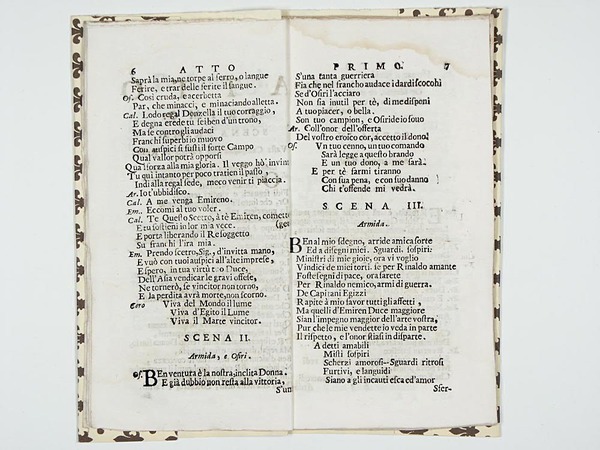 6 ATTO
Saprà la mia, ne torpe al ferro, o langue
Ferire, e trar delle ferite il sangue.
Os. Così cruda, e acerbetta
Par, che minacci, e minaciando alletta.
Cal. Lodo regal Donzella il tuo corraggio,
E degna erede tù sei ben d'un trono,
Ma se contro gli audaci
Franchi superbi io muovo
Con auspici sì fausti il forte Campo
Qual vallor potrà opporsi
Qual forza alla mia gloria. Il veggo hò' invim
Tu qui intanto per poco tratien il passo,
Indi alla regal sede, meco venir ti piaccia.
Ar. Io t'ubbidisco.
Cal. A me venga Emireno.
Em. Eccomi al tuo voler.
Cal. Te Questo Scetro, à tè Emiten, cometto
E tu sostieni in lor mia vece. (gen
E porta liberando il Re soggetto
Su franchi l'ira mia.
Em. Prendo scetro, Sig., d'invitta mano,
E vuò con tuoi auspici all'alte imprese,
Espero, in tua virtù tuo Duce,
Dell'Asia vendicar le gravi offese,
Ne tornerò, se vincitor non torno,
E la perdita avrà morte, non scorno.
Coro Viva del Mondo il lume
Viva d'Egito il Lume
Viva il Marte vincitor.
SCENA II.
Armida, e Osiri.
Os. BEn ventura è la nostra, inclita Donna.
E già dubbio non resta alla vittoria,
S'un
PRIMO. 7
S'una tanta guerriera
Fia che nel francho audace i dardi scochi
Se d'Osiri l'acciaro
Non sia inutil per tè, di me disponi
A tuo piacer, o bella.
Son tuo campion, e Osiride io suo
Ar. Coll'onor dell'offerta
Del vostro eroico cor, accetto il dono.
Os. Vn tuo cenno, un tuo comando
Sarà legge a questo brando
E un tuo dono, a me sarà.
E per tè sarmi tiranno
Con sua pena, e con suo danno
Chi t'offende mi vedrà.
SCENA III.
Armida.
BEn al mio sdegno, arride amica sorte
Ed a disegni miei. Sguardi, sospiri:
Ministri di mie gioie, ora vi voglio
Vindici de miei torti. se per Rinaldo amante
Foste segni di pace, ora sarete
Per Rinaldo nemico, armi di guerra.
De Capitani Egizzi
Rapite à mio favor tutti gl'affetti,
Ma quelli d'Emiren Duce maggiore
Sian l'impegno maggior dell'arte vostra,
Pur che le mie vendette io veda in parte
Il rispeto, e l'onor stiasi in disparte.
A detti amabili
Misti sospiri
Scherzi amorosi--Sguardi ritrosi
Furtivi, e languidi
Siano a gli incauti esca ed'amor
Sfer-